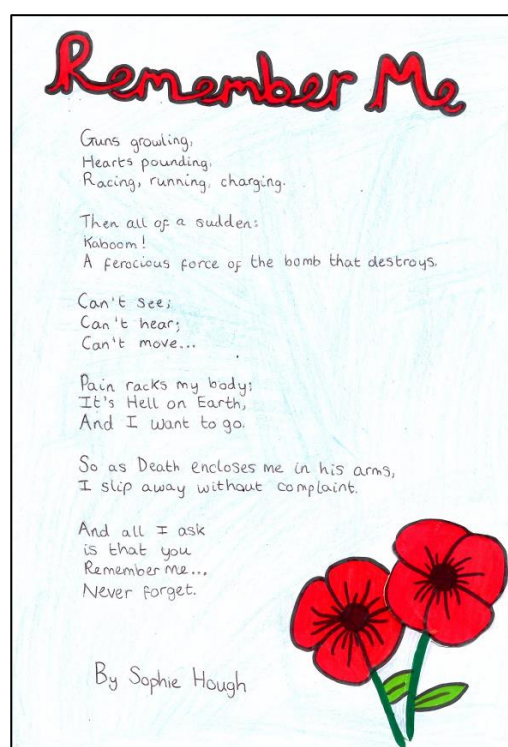 Remember Me
Guns growling,
Hearts pounding,
Racing, running, charging.
Then all of a sudden:
Kaboom!
A ferocious force of the bomb that destroys.
Can't see;
Can't hear;
Can't move...
Pain racks my body;
It's Hell on Earth,
And I want to go.
So as Death encloses me in his arms,
I slip away without complaint.
And all I ask
is that you
Remember me...
Never forget.
By Sophie Hough